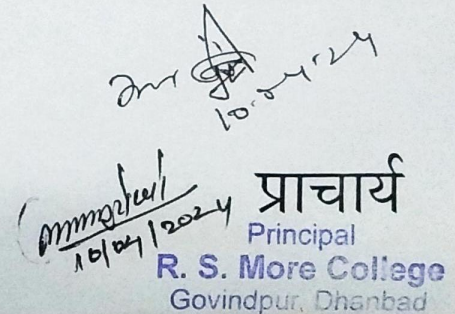 10.04.24
प्राचार्य
10/04/2024
Principal
R. S. More College
Govindpur, Dhanbad